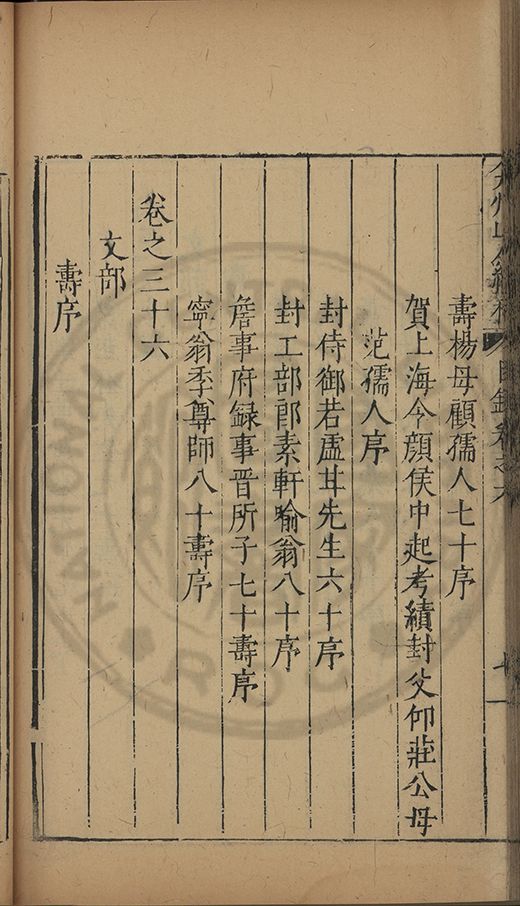 弇州山人續稿 目録卷之六
壽楊母顧孺人七十序
賀上海令顏侯中起考績封父仰莊公母
范孺人序
封侍御若虛甘先生六十序
封工部郎素軒喻翁八十序
詹事府録事晋所子七十壽序
寧翁季尊師八十壽序
卷之三十六
文部
壽序